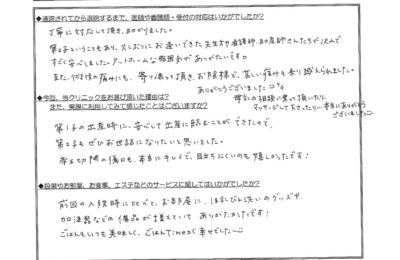 ●通院されてから退院するまで、医師や看護師・受付の対応はいかがでしたか?
丁寧に対応して頂き、助かりました。
第2子ということもあり、久しぶりにお逢いできた先生方や看護師、助産師さんたちが沢山で
すごく安心しました。アットホームな雰囲気がありがたいです。
また、陣痛の痛みにも、寄り添って頂き、お陰様で、苦しい痛みも乗り越えられました。
ありがとうございました
母乳の相談に乗って頂いたり、
マッサージして下さったり…本当にありがとう
ございました
●今回、当クリニックをお選び頂いた理由は?
また、実際に利用してみて感じたことはございますか?
第1子の出産時に、安心して出産に臨むことができたので、
第2子もぜひお世話になりたいと思いました。
帝王切開の傷口も、本当にキレイで、目立ちにくいのも嬉しかったです!
●設備やお部屋、お食事、エステなどのサービスに関してはいかがでしたか?
前回の入院時に比べて、お部屋に、ほ乳びん洗いのグッズや
加湿器などの備品が増えていて ありがたかったです!
ごはんもいつも美味しく、ごはんtimeが幸せでした